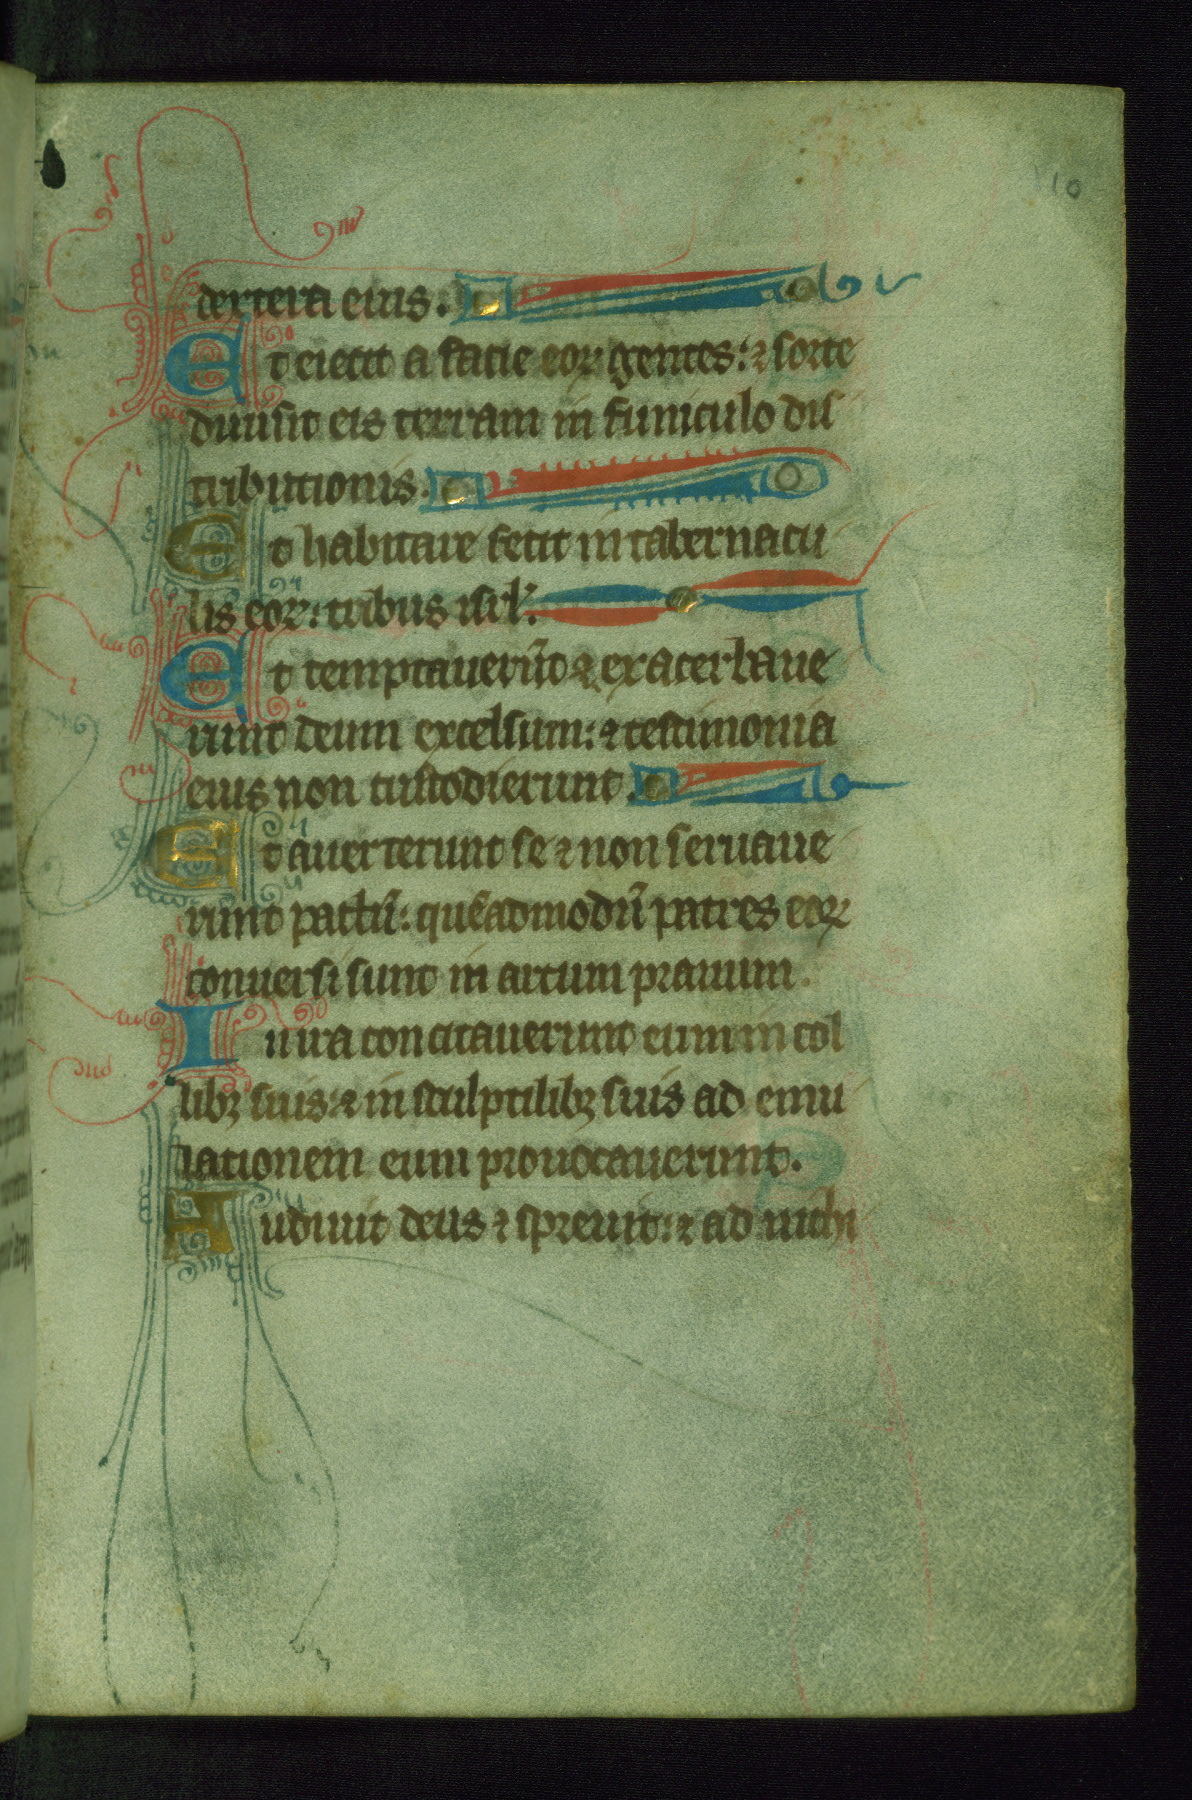 10
dextera eius.
Et eiecit a facie eoꝝ gentes: ⁊ sorte
diuisit eis terram in funiculo dis
tributionis.
Et habitare fecit in tabernacu
lis eoꝝ: tribus isrl'.
Et temptauerūt ⁊ exacerbaue
runt deum excelsum: ⁊ testimonia
eius non custodierunt.
Et auerterunt se ⁊ non seruaue
runt pactū: quēadmodū patres eoꝝ
conuersi sunt in arcum prauum.
In ira concitauerunt eum in col
libꝫ suis: ⁊ in sculptilibꝫ suis ad emu
lationem eum prouocauerunt.
Audiuit deus ⁊ spreuit: ⁊ ad nichi